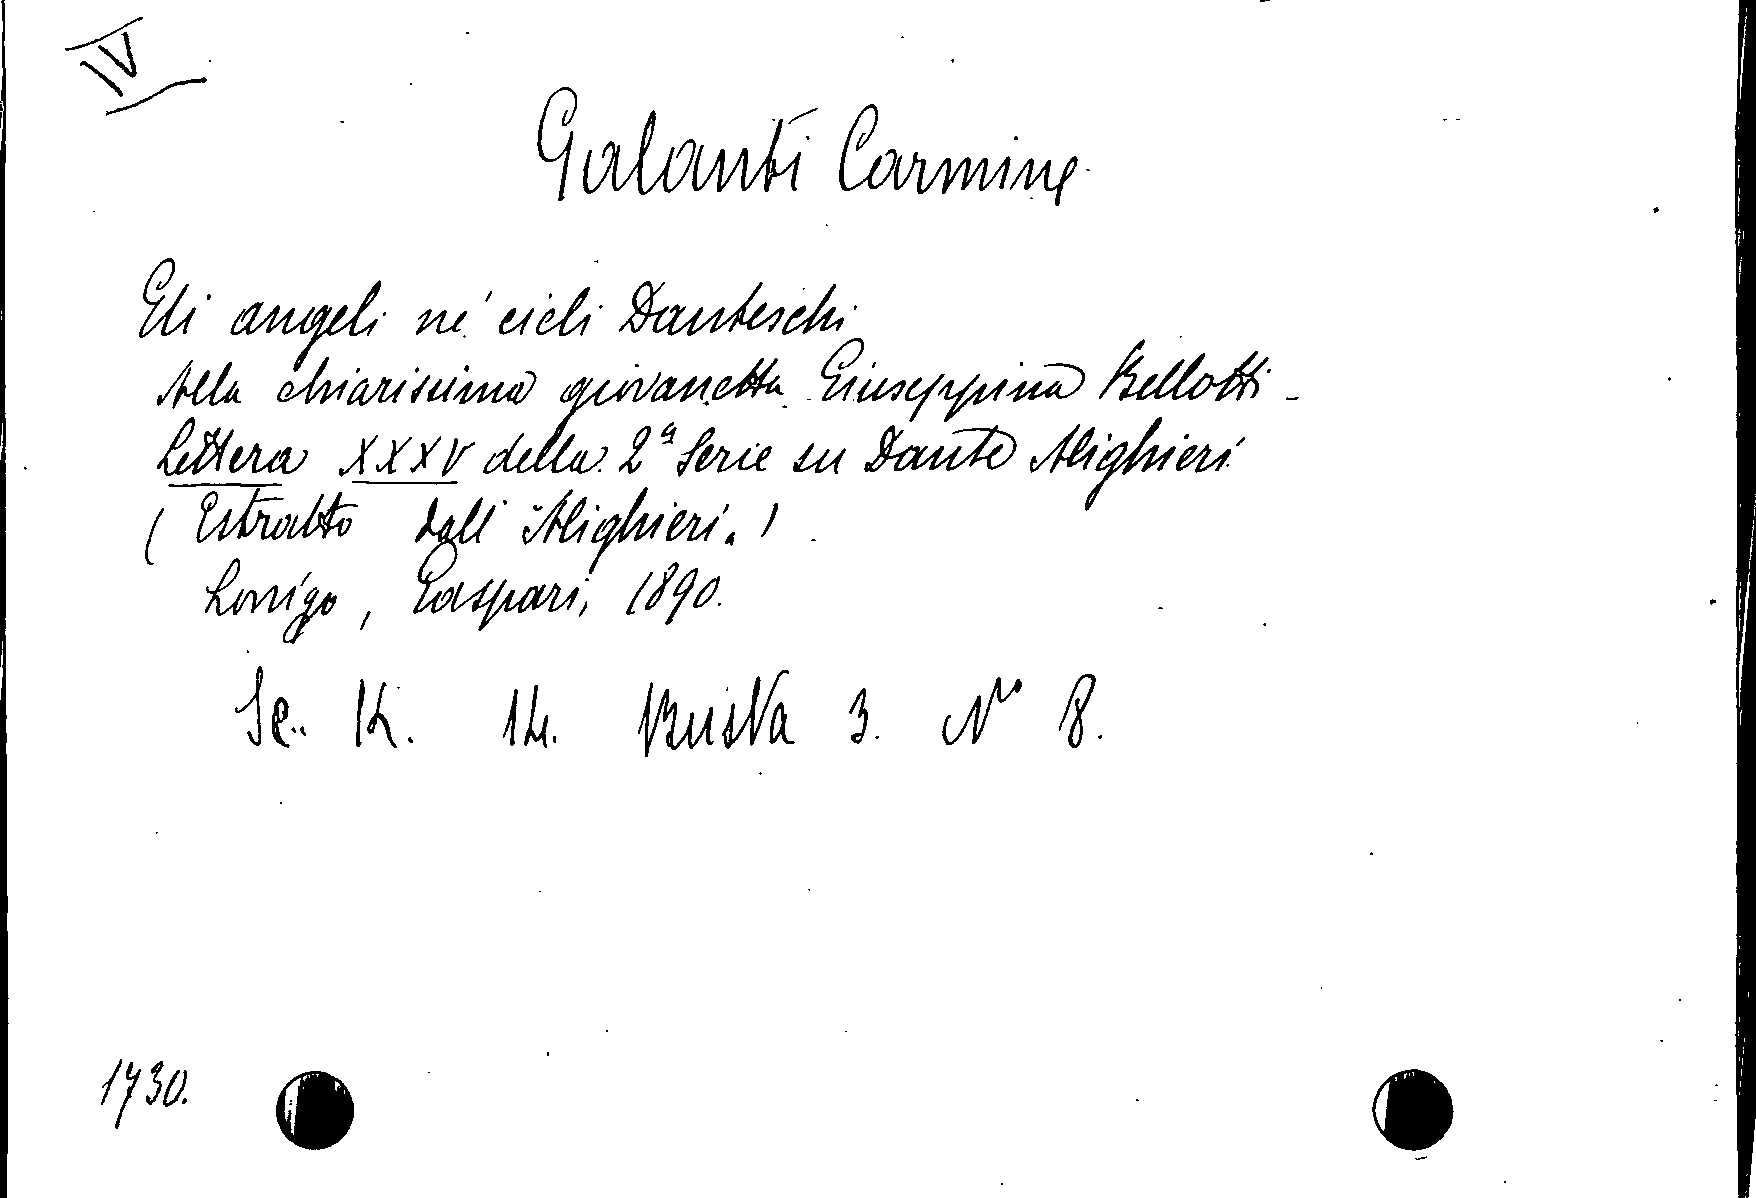 IV
Galanti Carmine
Gli angeli ne' cieli Danteschi
Alla chiarissima giovanetta Giuseppina Bellotti -
Lettera XXXV della 2ª Serie su Dante Alighieri
(Estratto dall'"Alighieri")
Lonigo, Gaspari, 1890.
Sc. K. 14. Busta 3. Nº 8.
1730.